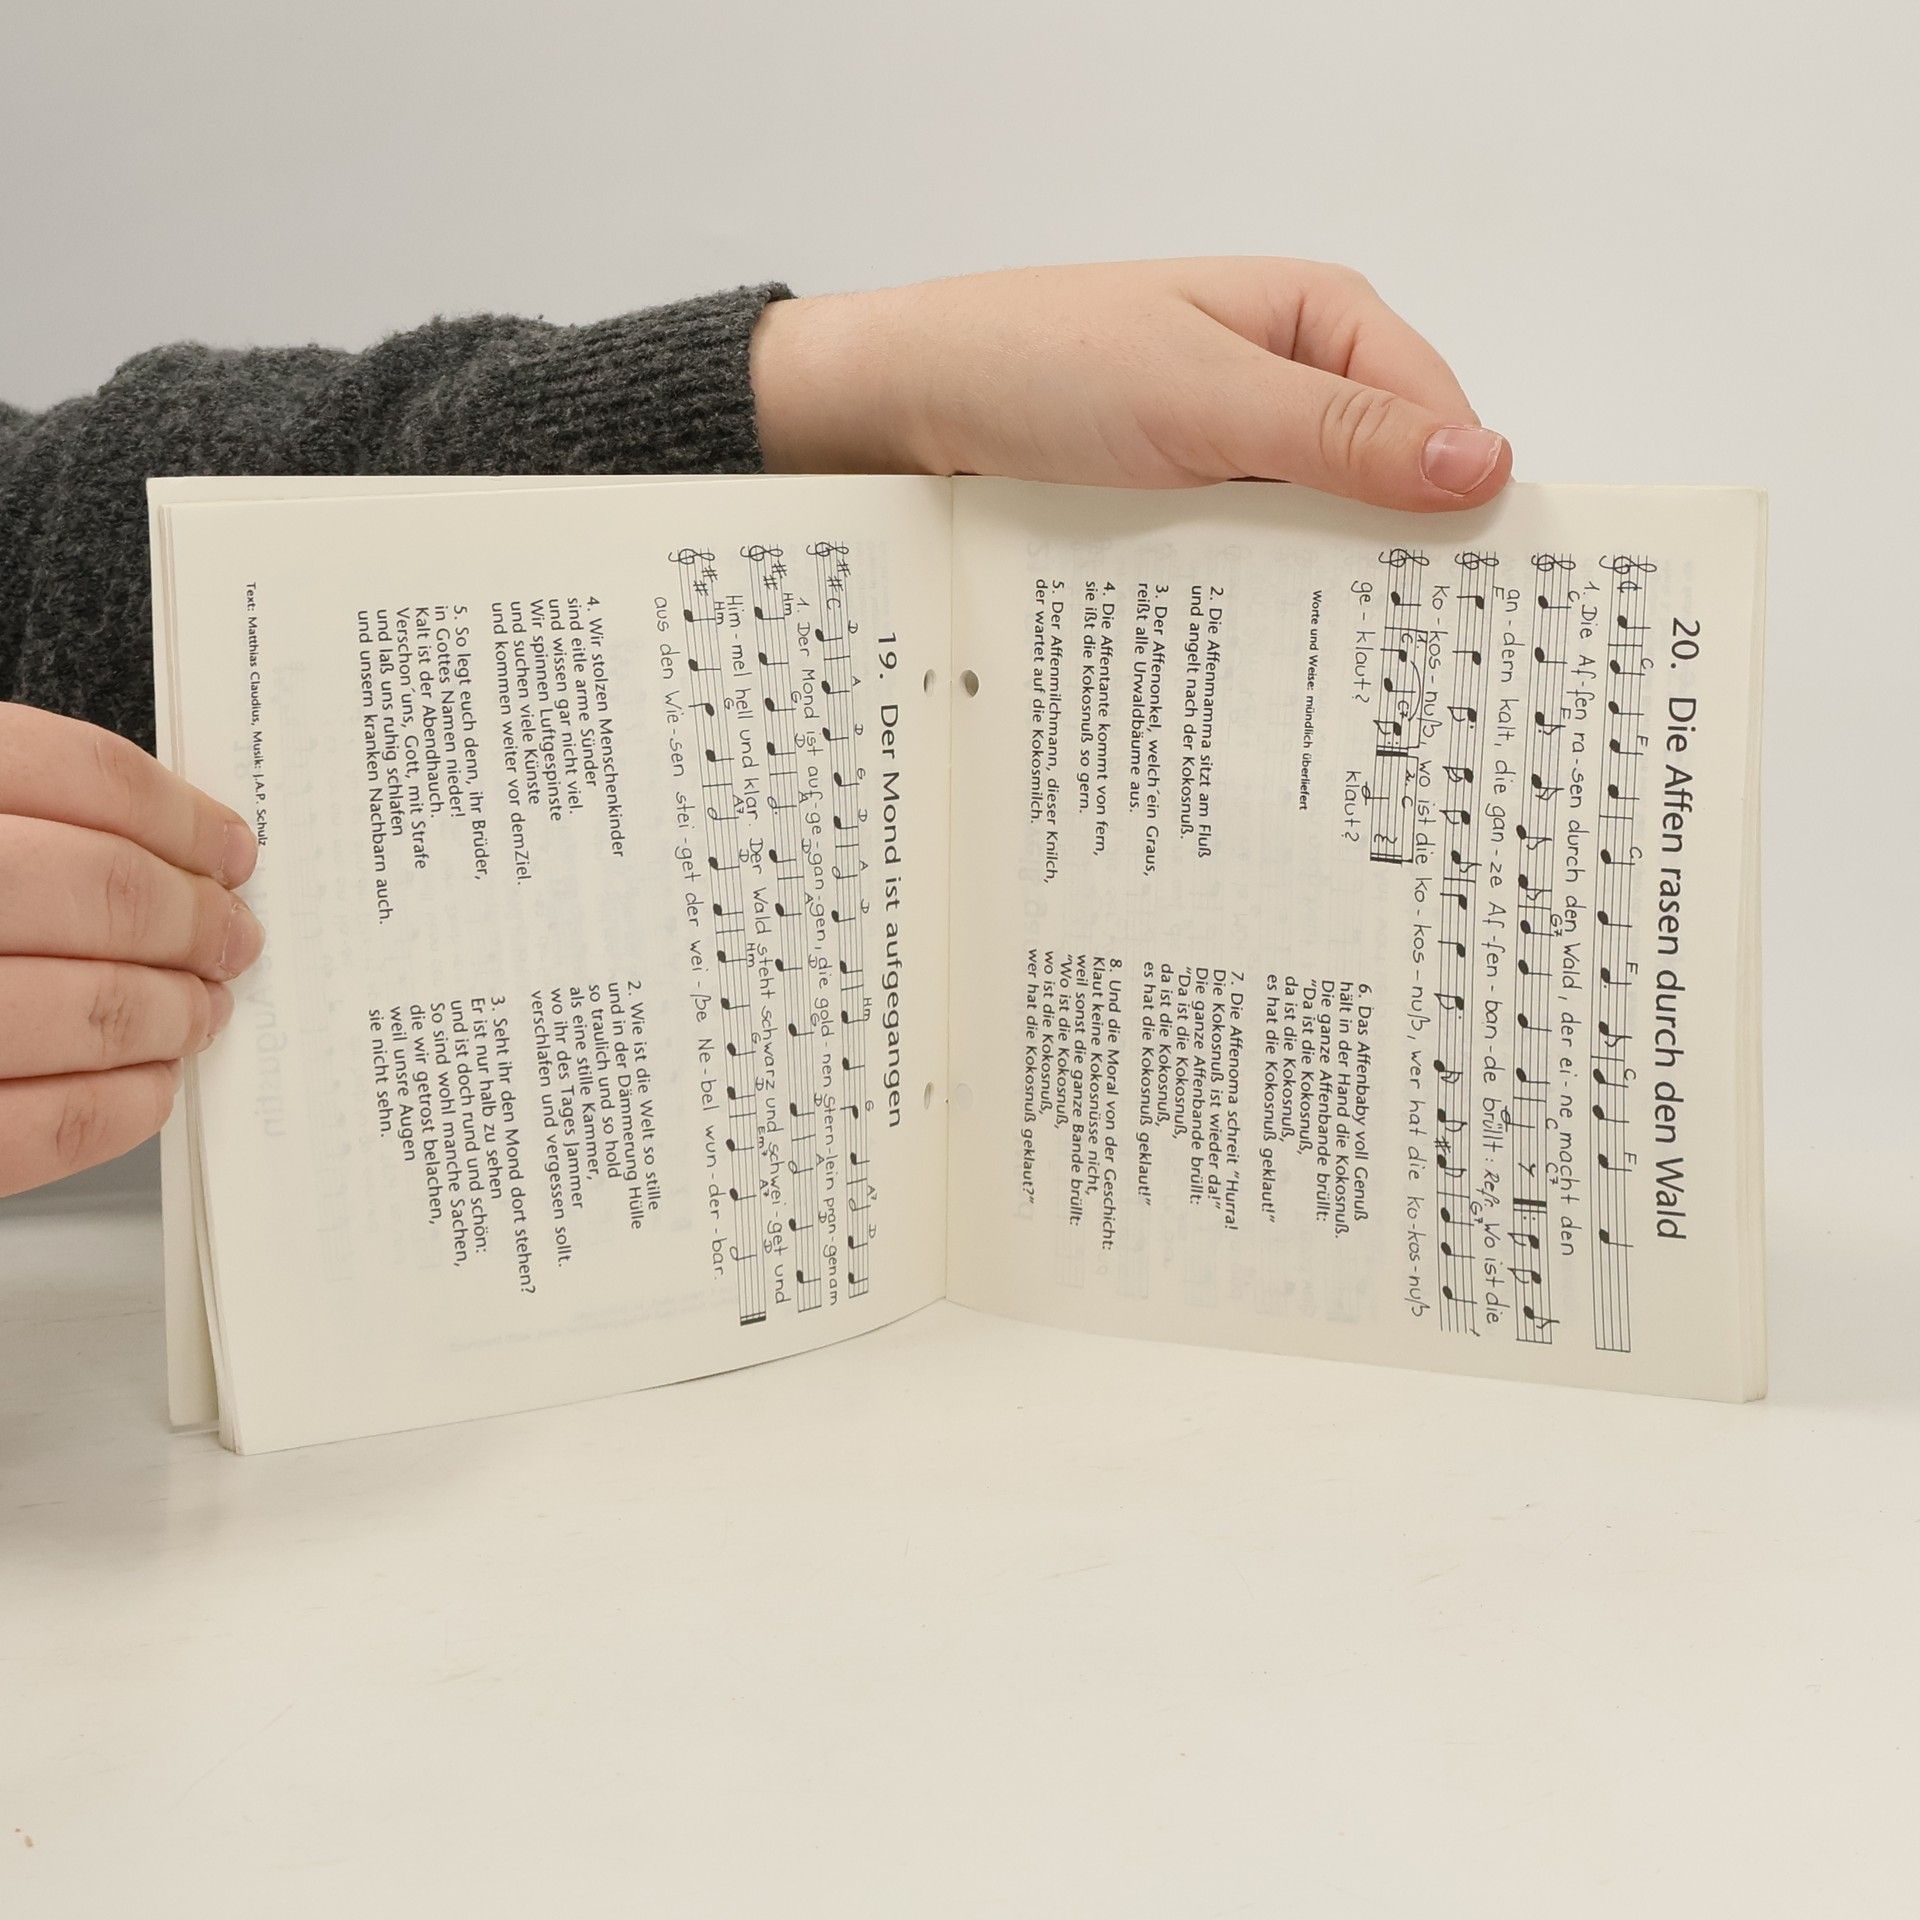 20. Die Affen rasen durch den Wald
1. Die Af-fen ra-sen durch den Wald, der ei-ne macht den
an-dern kalt, die gan-ze Af-fen-ban-de brüllt: Refr. Wo ist die
ko-kos-nuß, wo ist die ko-kos-nuß, wer hat die ko-kos-nuß
ge-klaut? klaut?
Worte und Weise: mündlich überliefert
2. Die Affenmamma sitzt am Fluß
und angelt nach der Kokosnuß.
3. Der Affenonkel, welch'ein Graus,
reißt alle Urwaldbäume aus.
4. Die Affentante kommt von fern,
sie ißt die Kokosnuß so gern.
5. Der Affenmilchmann, dieser Knilch,
der wartet auf die Kokosmilch.
6. Das Affenbaby voll Genuß
hält in der Hand die Kokosnuß.
Die ganze Affenbande brüllt:
"Da ist die Kokosnuß,
da ist die Kokosnuß,
es hat die Kokosnuß geklaut!"
7. Die Affenoma schreit "Hurra!
Die Kokosnuß ist wieder da!"
Die ganze Affenbande brüllt:
"Da ist die Kokosnuß,
da ist die Kokosnuß,
es hat die Kokosnuß geklaut!"
8. Und die Moral von der Geschicht:
Klaut keine Kokosnüsse nicht,
weil sonst die ganze Bande brüllt:
"Wo ist die Kokosnuß,
wo ist die Kokosnuß,
wer hat die Kokosnuß geklaut?"
19. Der Mond ist aufgegangen
1. Der Mond ist auf-ge-gan-gen, die gold-nen Stern-lein pran-gen am
Him-mel hell und klar. Der Wald steht schwarz und schwei-get und
aus den Wie-sen stei-get der wei-ße Ne-bel wun-der-bar.
2. Wie ist die Welt so stille
und in der Dämmerung Hülle
so traulich und so hold
als eine stille Kammer,
wo ihr des Tages Jammer
verschlafen und vergessen sollt.
3. Seht ihr den Mond dort stehen?
Er ist nur halb zu sehen
und ist doch rund und schön:
So sind wohl manche Sachen,
die wir getrost belachen,
weil unsre Augen
sie nicht sehn.
4. Wir stolzen Menschenkinder
sind eitle arme Sünder
und wissen gar nicht viel.
Wir spinnen Luftgespinste
und suchen viele Künste
und kommen weiter vor demZiel.
5. So legt euch denn, ihr Brüder,
in Gottes Namen nieder!
Kalt ist der Abendhauch.
Verschon'uns, Gott, mit Strafe
und laß uns ruhig schlafen
und unsern kranken Nachbarn auch.
Text: Matthias Claudius, Musik: J.A.P. Schulz